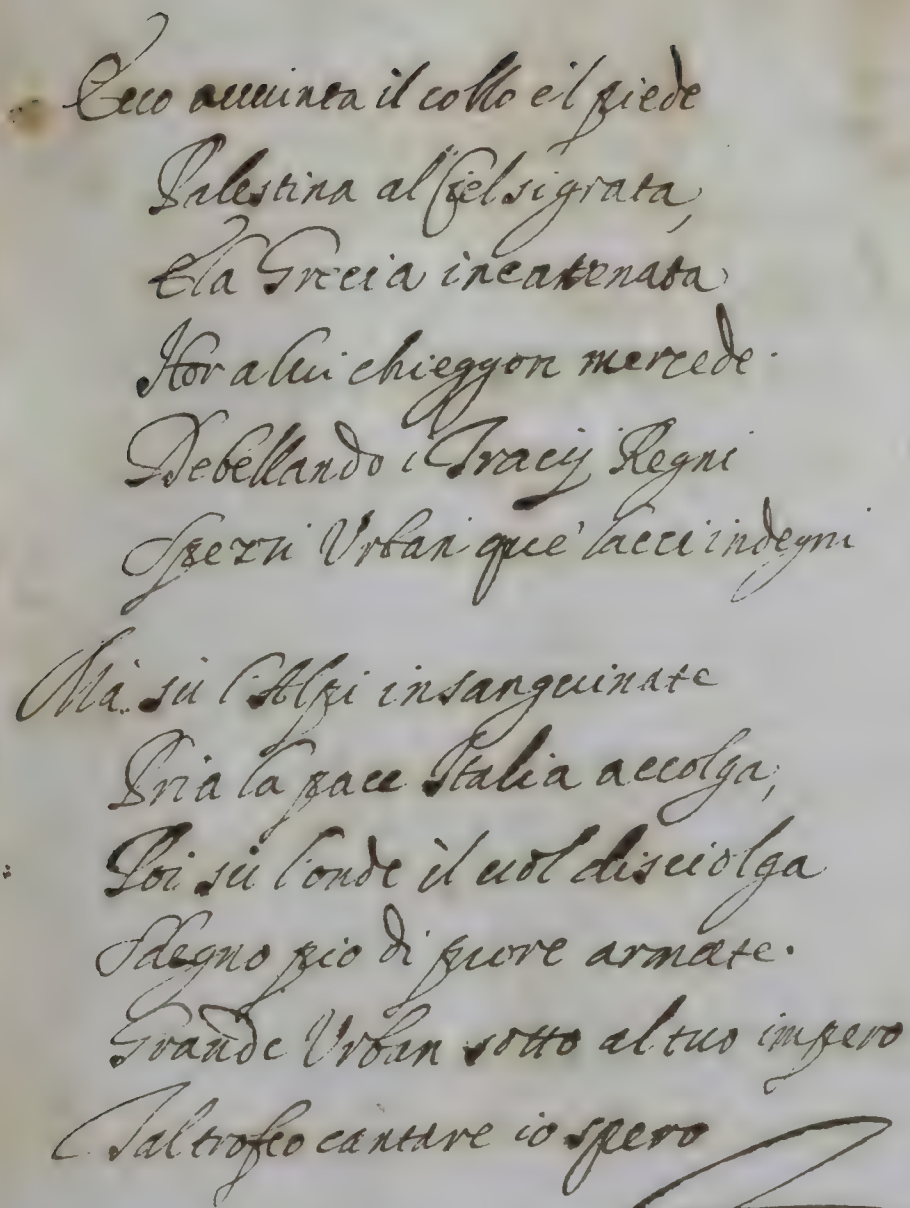 Ecco auuinta il collo e'l piede
Palestina al Ciel si grata,
E la Grecia incatenata
Hor a lui chieggon mercede.
Debellando i Tracij Regni
Spezzi Urban que' lacci indegni
Mà sù l'Alpi insanguinate
Pria la pace Italia accolga,
Poi sù l'onde il uol disciolga
Sdegno pio di puore armate.
Grande Urban sotto al tuo impero
Tal trofeo cantare io spero